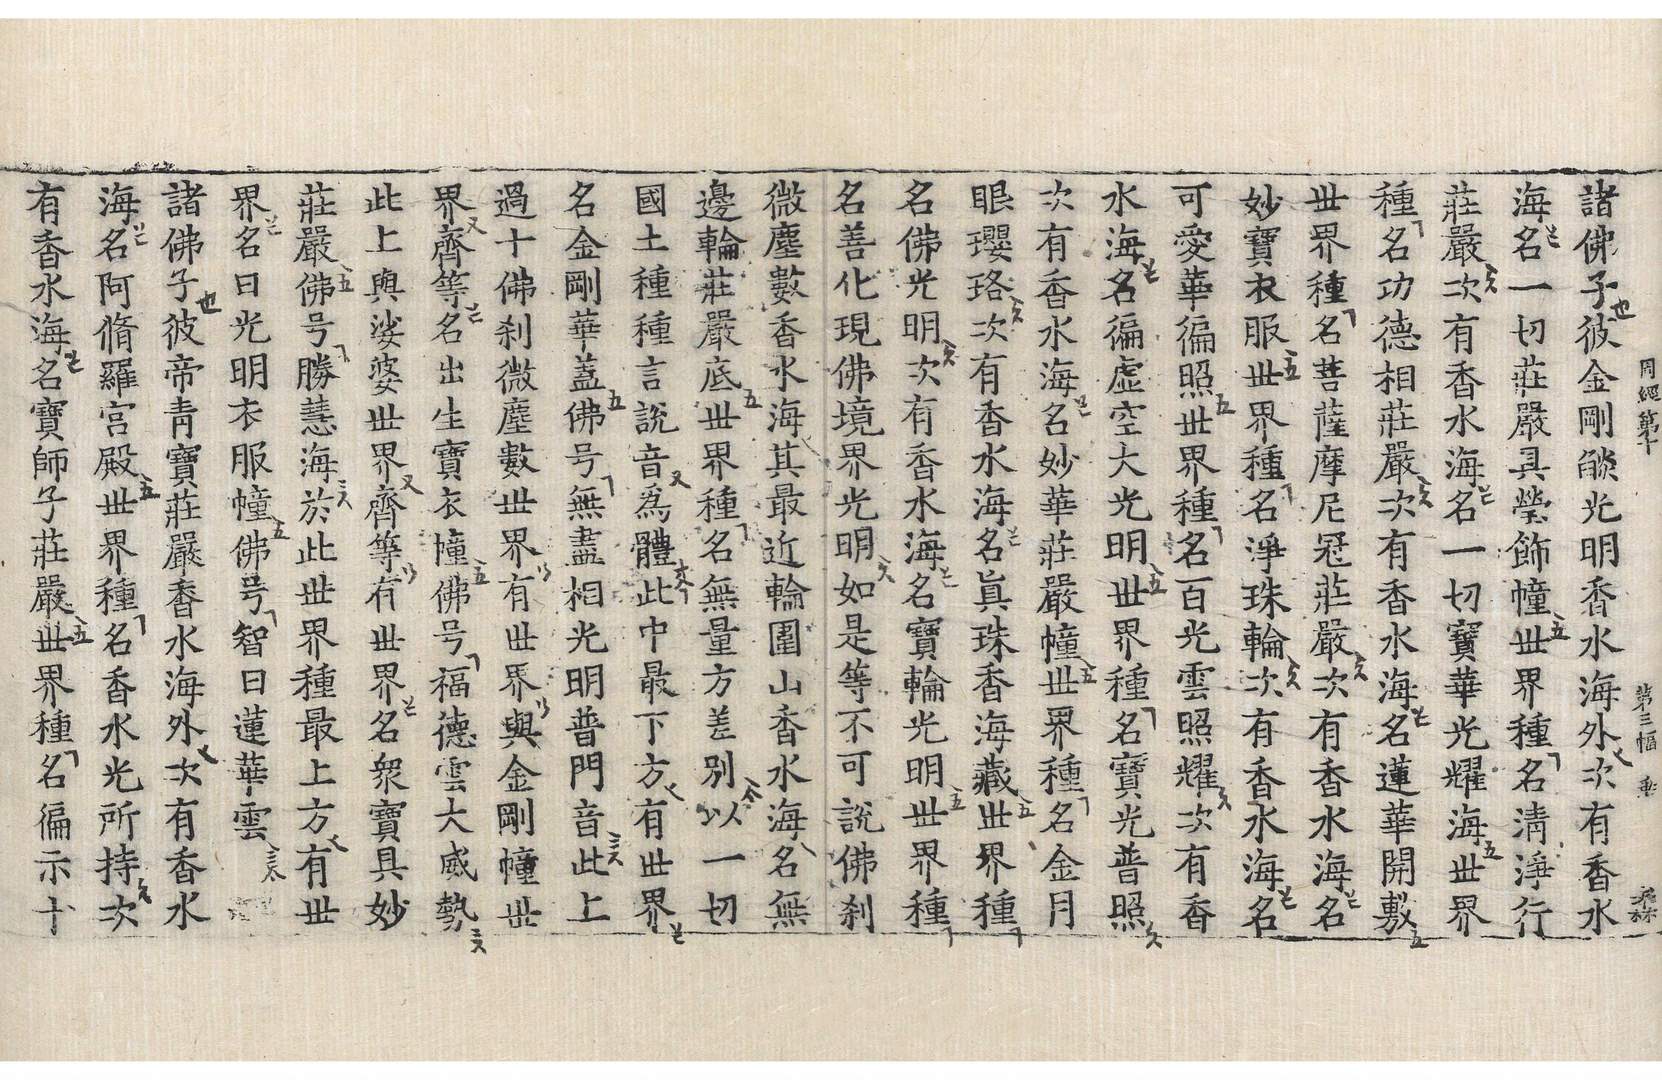 周經第十 第三幅
諸佛子彼金剛燄光明香水海外次有香水
海名一切莊嚴具瑩飾幢世界種名清淨行
莊嚴次有香水海名一切寶華光耀海世界
種名功德相莊嚴次有香水海名蓮華開敷
世界種名菩薩摩尼冠莊嚴次有香水海名
妙寶衣服世界種名淨珠輪次有香水海名
可愛華徧照世界種名百光雲照耀次有香
水海名徧虛空大光明世界種名寶光普照
次有香水海名妙華莊嚴幢世界種名金月
眼瓔珞次有香水海名眞珠香海藏世界種
名佛光明次有香水海名寶輪光明世界種
名善化現佛境界光明如是等不可說佛刹
微塵數香水海其最近輪圍山香水海名無
邊輪莊嚴底世界種名無量方差別以一切
國土種種言說音爲體此中最下方有世界
名金剛華蓋佛号無盡相光明普門音此上
過十佛刹微塵數世界有世界與金剛幢世
界齊等名出生寶衣幢佛号福德雲大威勢
此上與娑婆世界齊等有世界名衆寶具妙
莊嚴佛号勝慧海於此世界種最上方有世
界名日光明衣服幢佛号智日蓮華雲
諸佛子彼帝青寶莊嚴香水海外次有香水
海名阿脩羅宮殿世界種名香水光所持次
有香水海名寶師子莊嚴世界種名徧示十